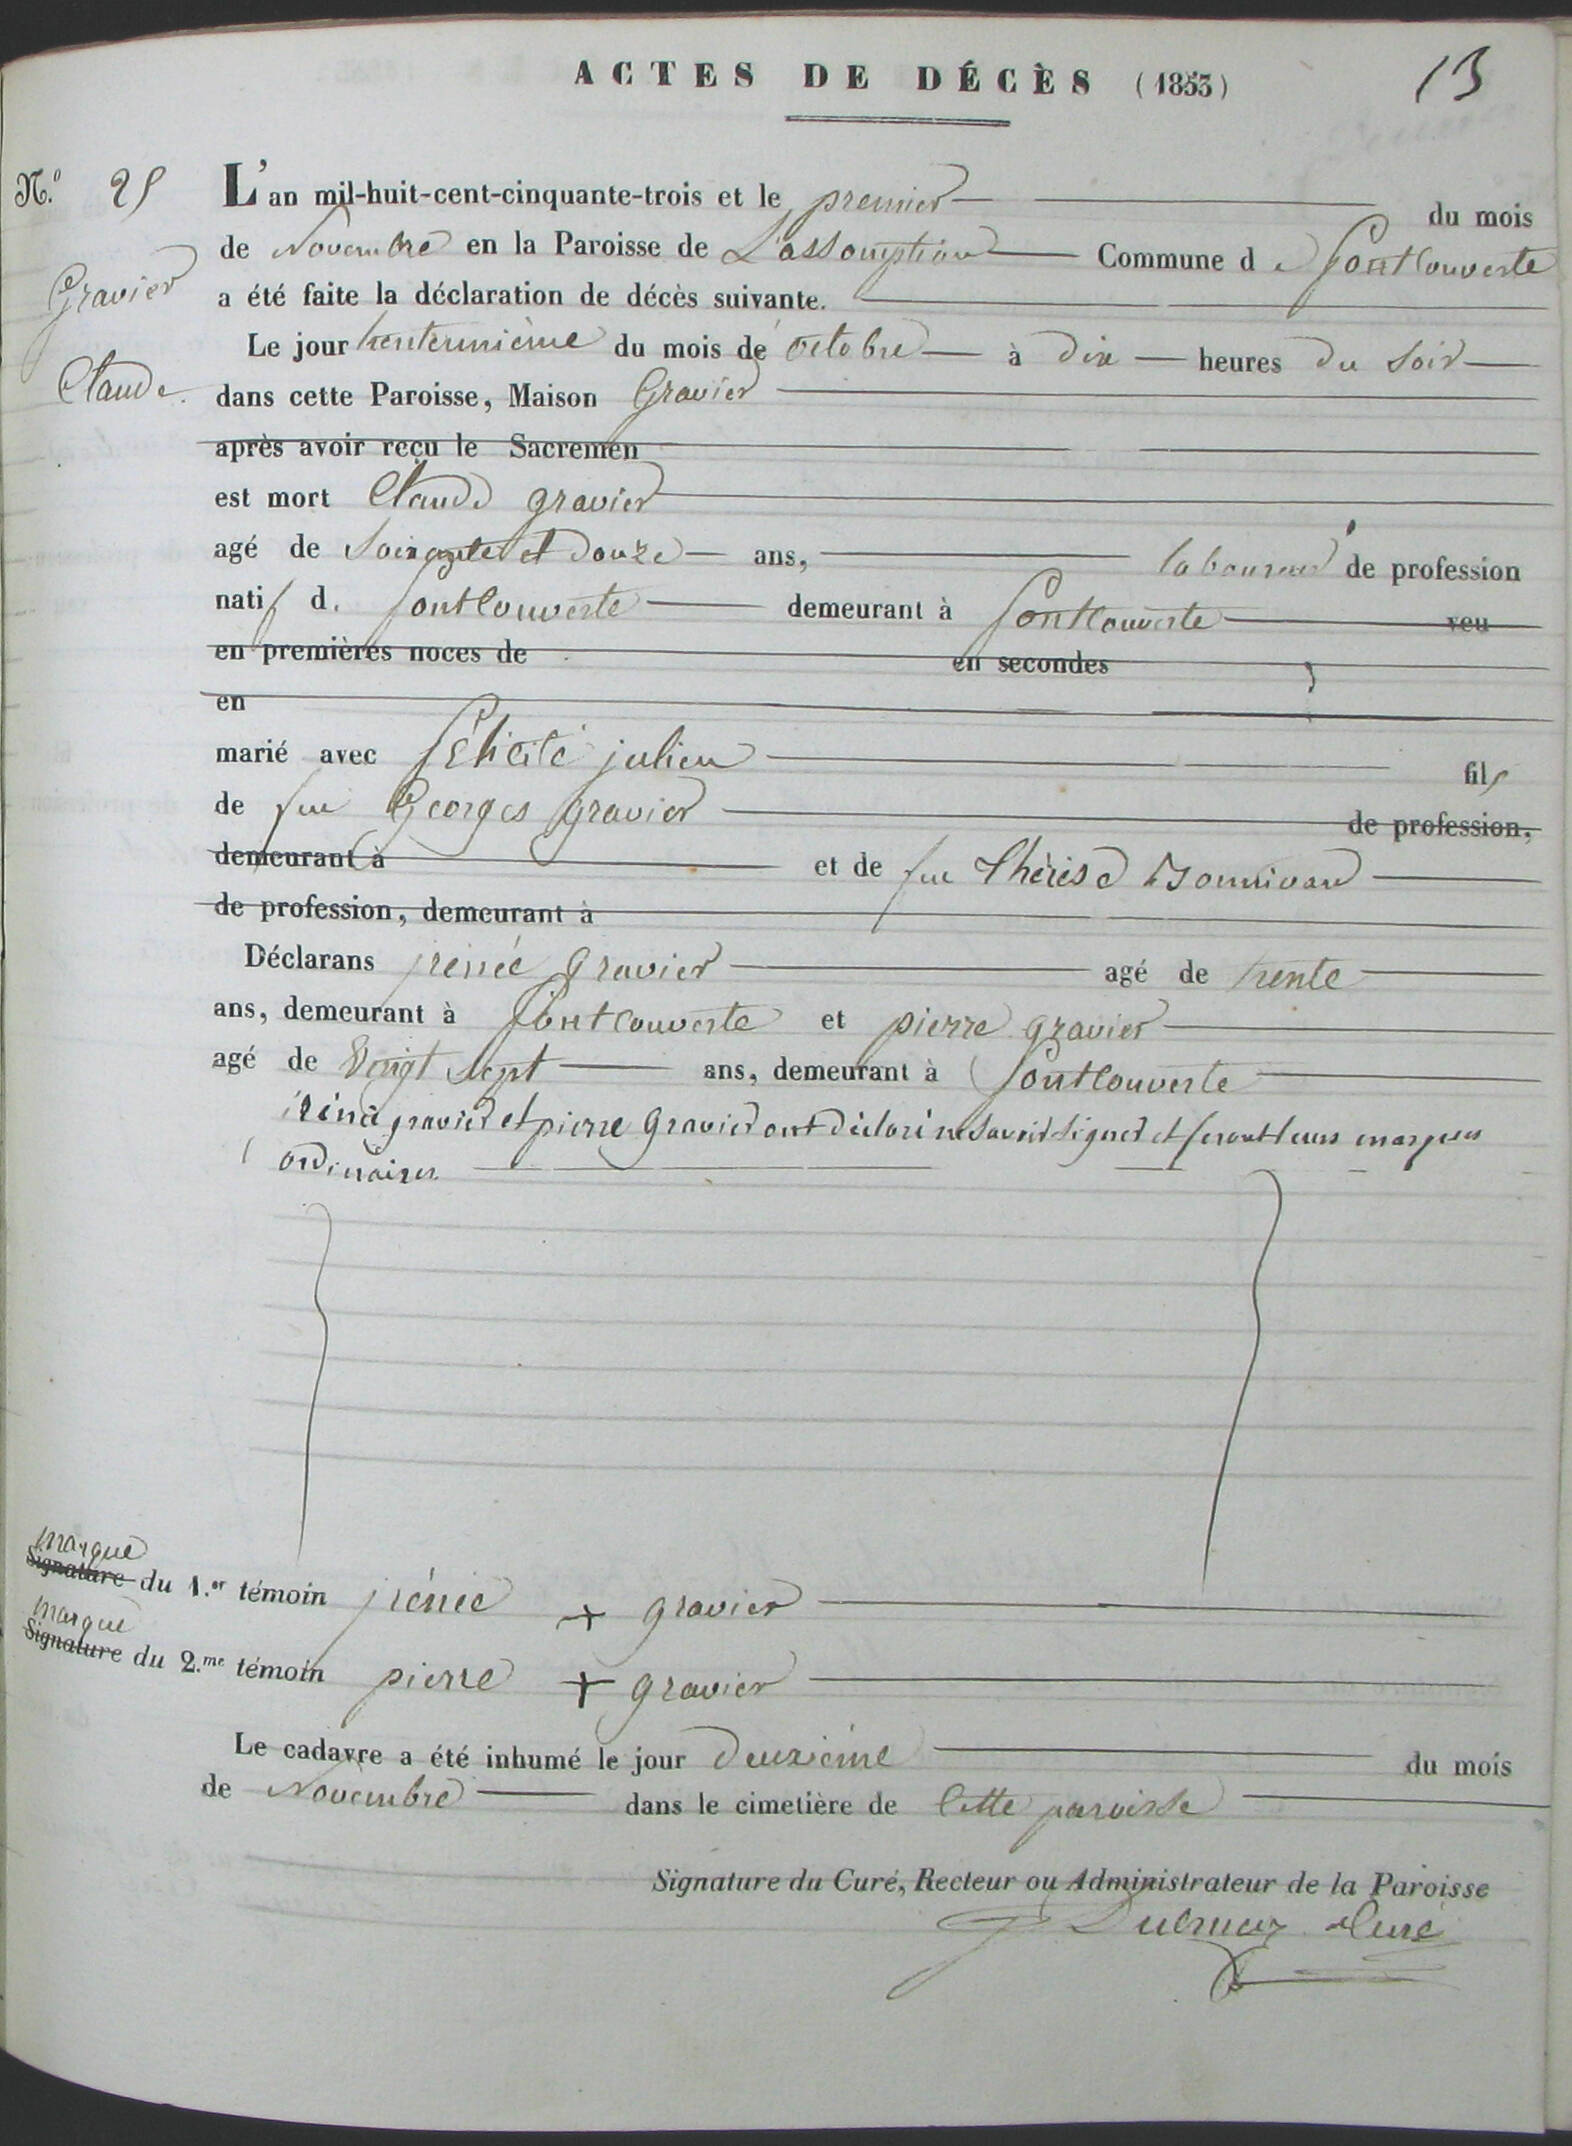 ACTES DE DÉCÈS (1853) 13
N.º 25 L'an mil-huit-cent-cinquante-trois et le premier du mois
de Novembre en la Paroisse de L'assomption Commune de fontCouverte
Gravier a été faite la déclaration de décès suivante.
Le jour trenteunième du mois de octobre à dix heures du soir
Claude. dans cette Paroisse, Maison Gravier
après avoir reçu le Sacremen
est mort Claude gravier
agé de soixante et douze ans, laboureur de profession
natif d. fontCouverte demeurant à fontCouverte veu
en premières noces de en secondes
en
marié avec félicité julien fils
de feu Georges gravier de profession,
demeurant à et de feue thérèse Bonnivard
de profession, demeurant à
Déclarans irénée gravier agé de trente
ans, demeurant à fontcouverte et pierre gravier
agé de vingt sept ans, demeurant à fontCouverte
iréné gravier et pierre Gravier ont déclaré ne savoir signer et feront leurs marques
ordinaires
marque
Signature du 1.er témoin irénée + gravier
marque
Signature du 2.me témoin pierre + gravier
Le cadavre a été inhumé le jour deuxième du mois
de Novembre dans le cimetière de Cette paroisse
Signature du Curé, Recteur ou Administrateur de la Paroisse
Curé